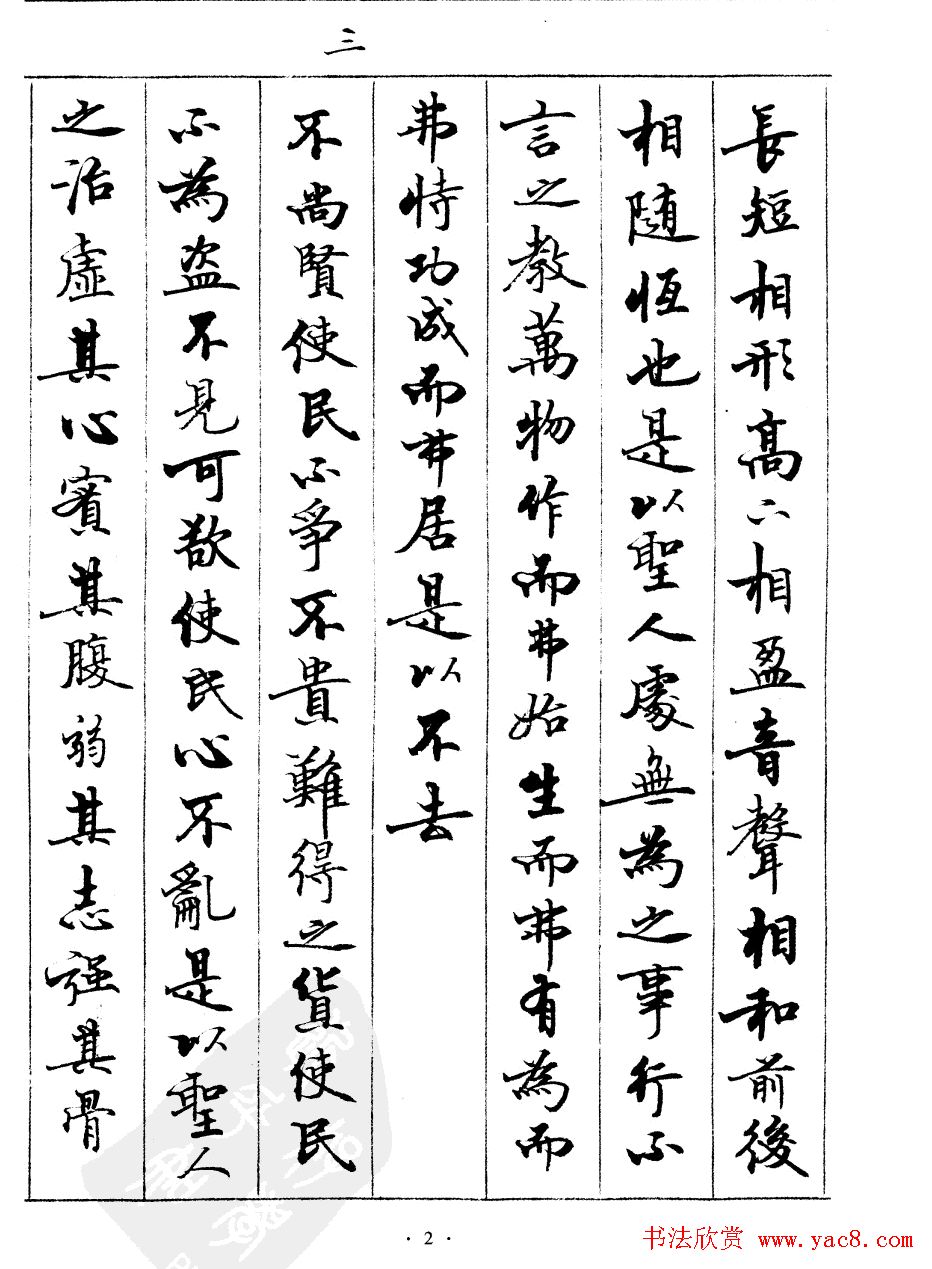 三
長短相形高下相盈音聲相和前後
相隨恆也是以聖人處無為之事行不
言之教萬物作而弗始生而弗有為而
弗恃功成而弗居是以不去
不尚賢使民不爭不貴難得之貨使民
不為盜不見可欲使民心不亂是以聖人
之治虛其心實其腹弱其志强其骨
· 2 ·
书法欣赏 www.yac8.com